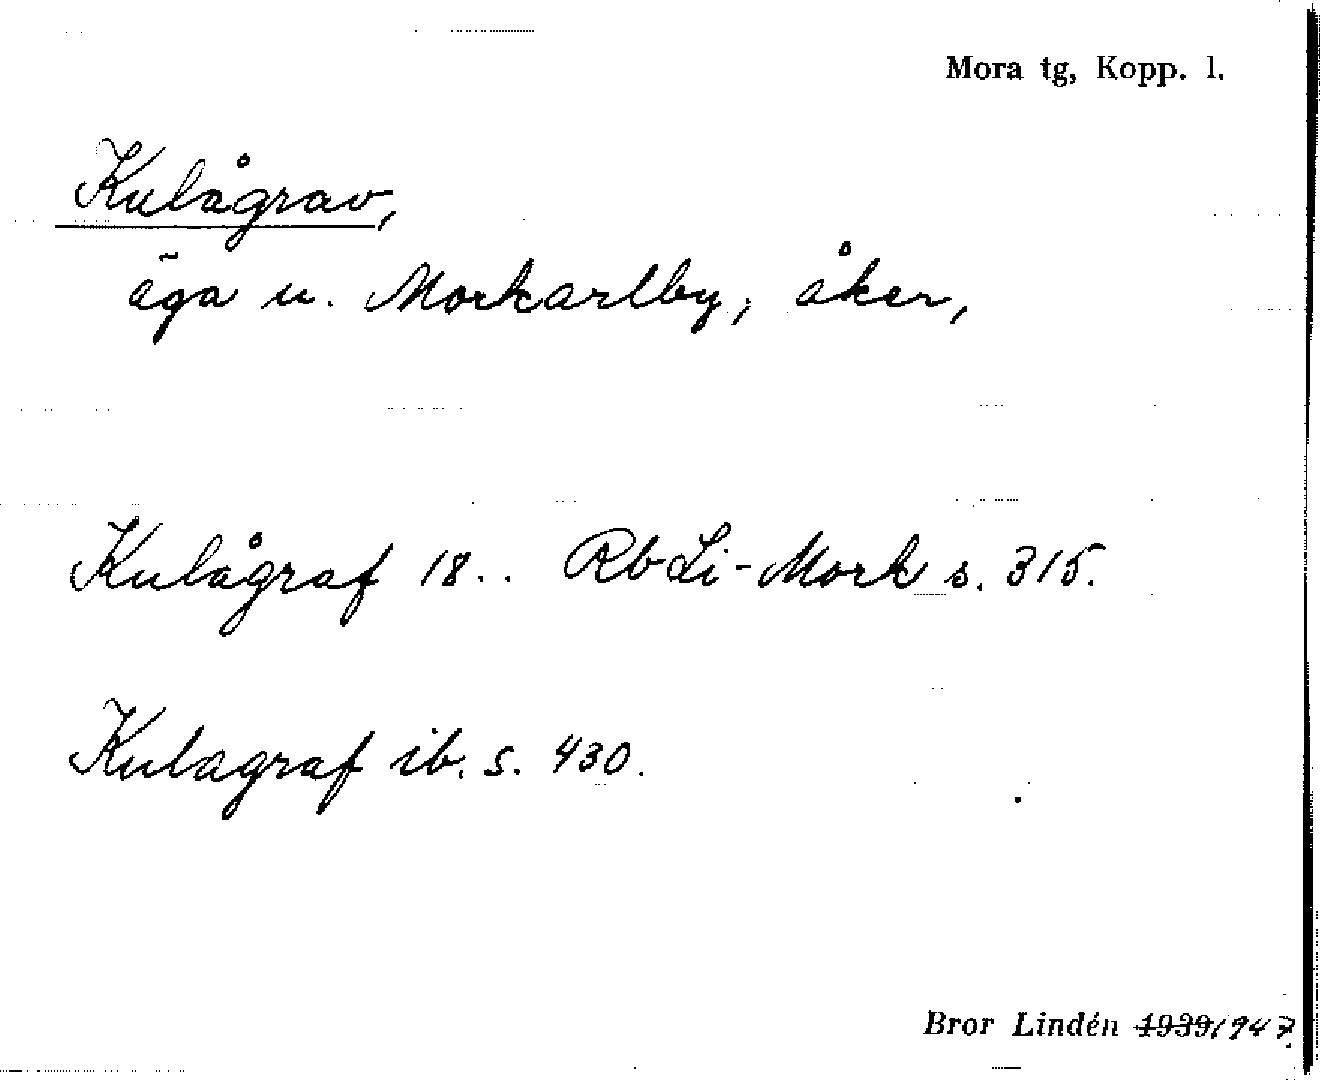 Mora tg, Kopp. l.
Kulågrav,
äga u. Morkarlby, åker,
Kulågraf 18.. Rb Li-Mork s. 315.
Kulagraf ib. s. 430.
Bror Lindén 1939 1947